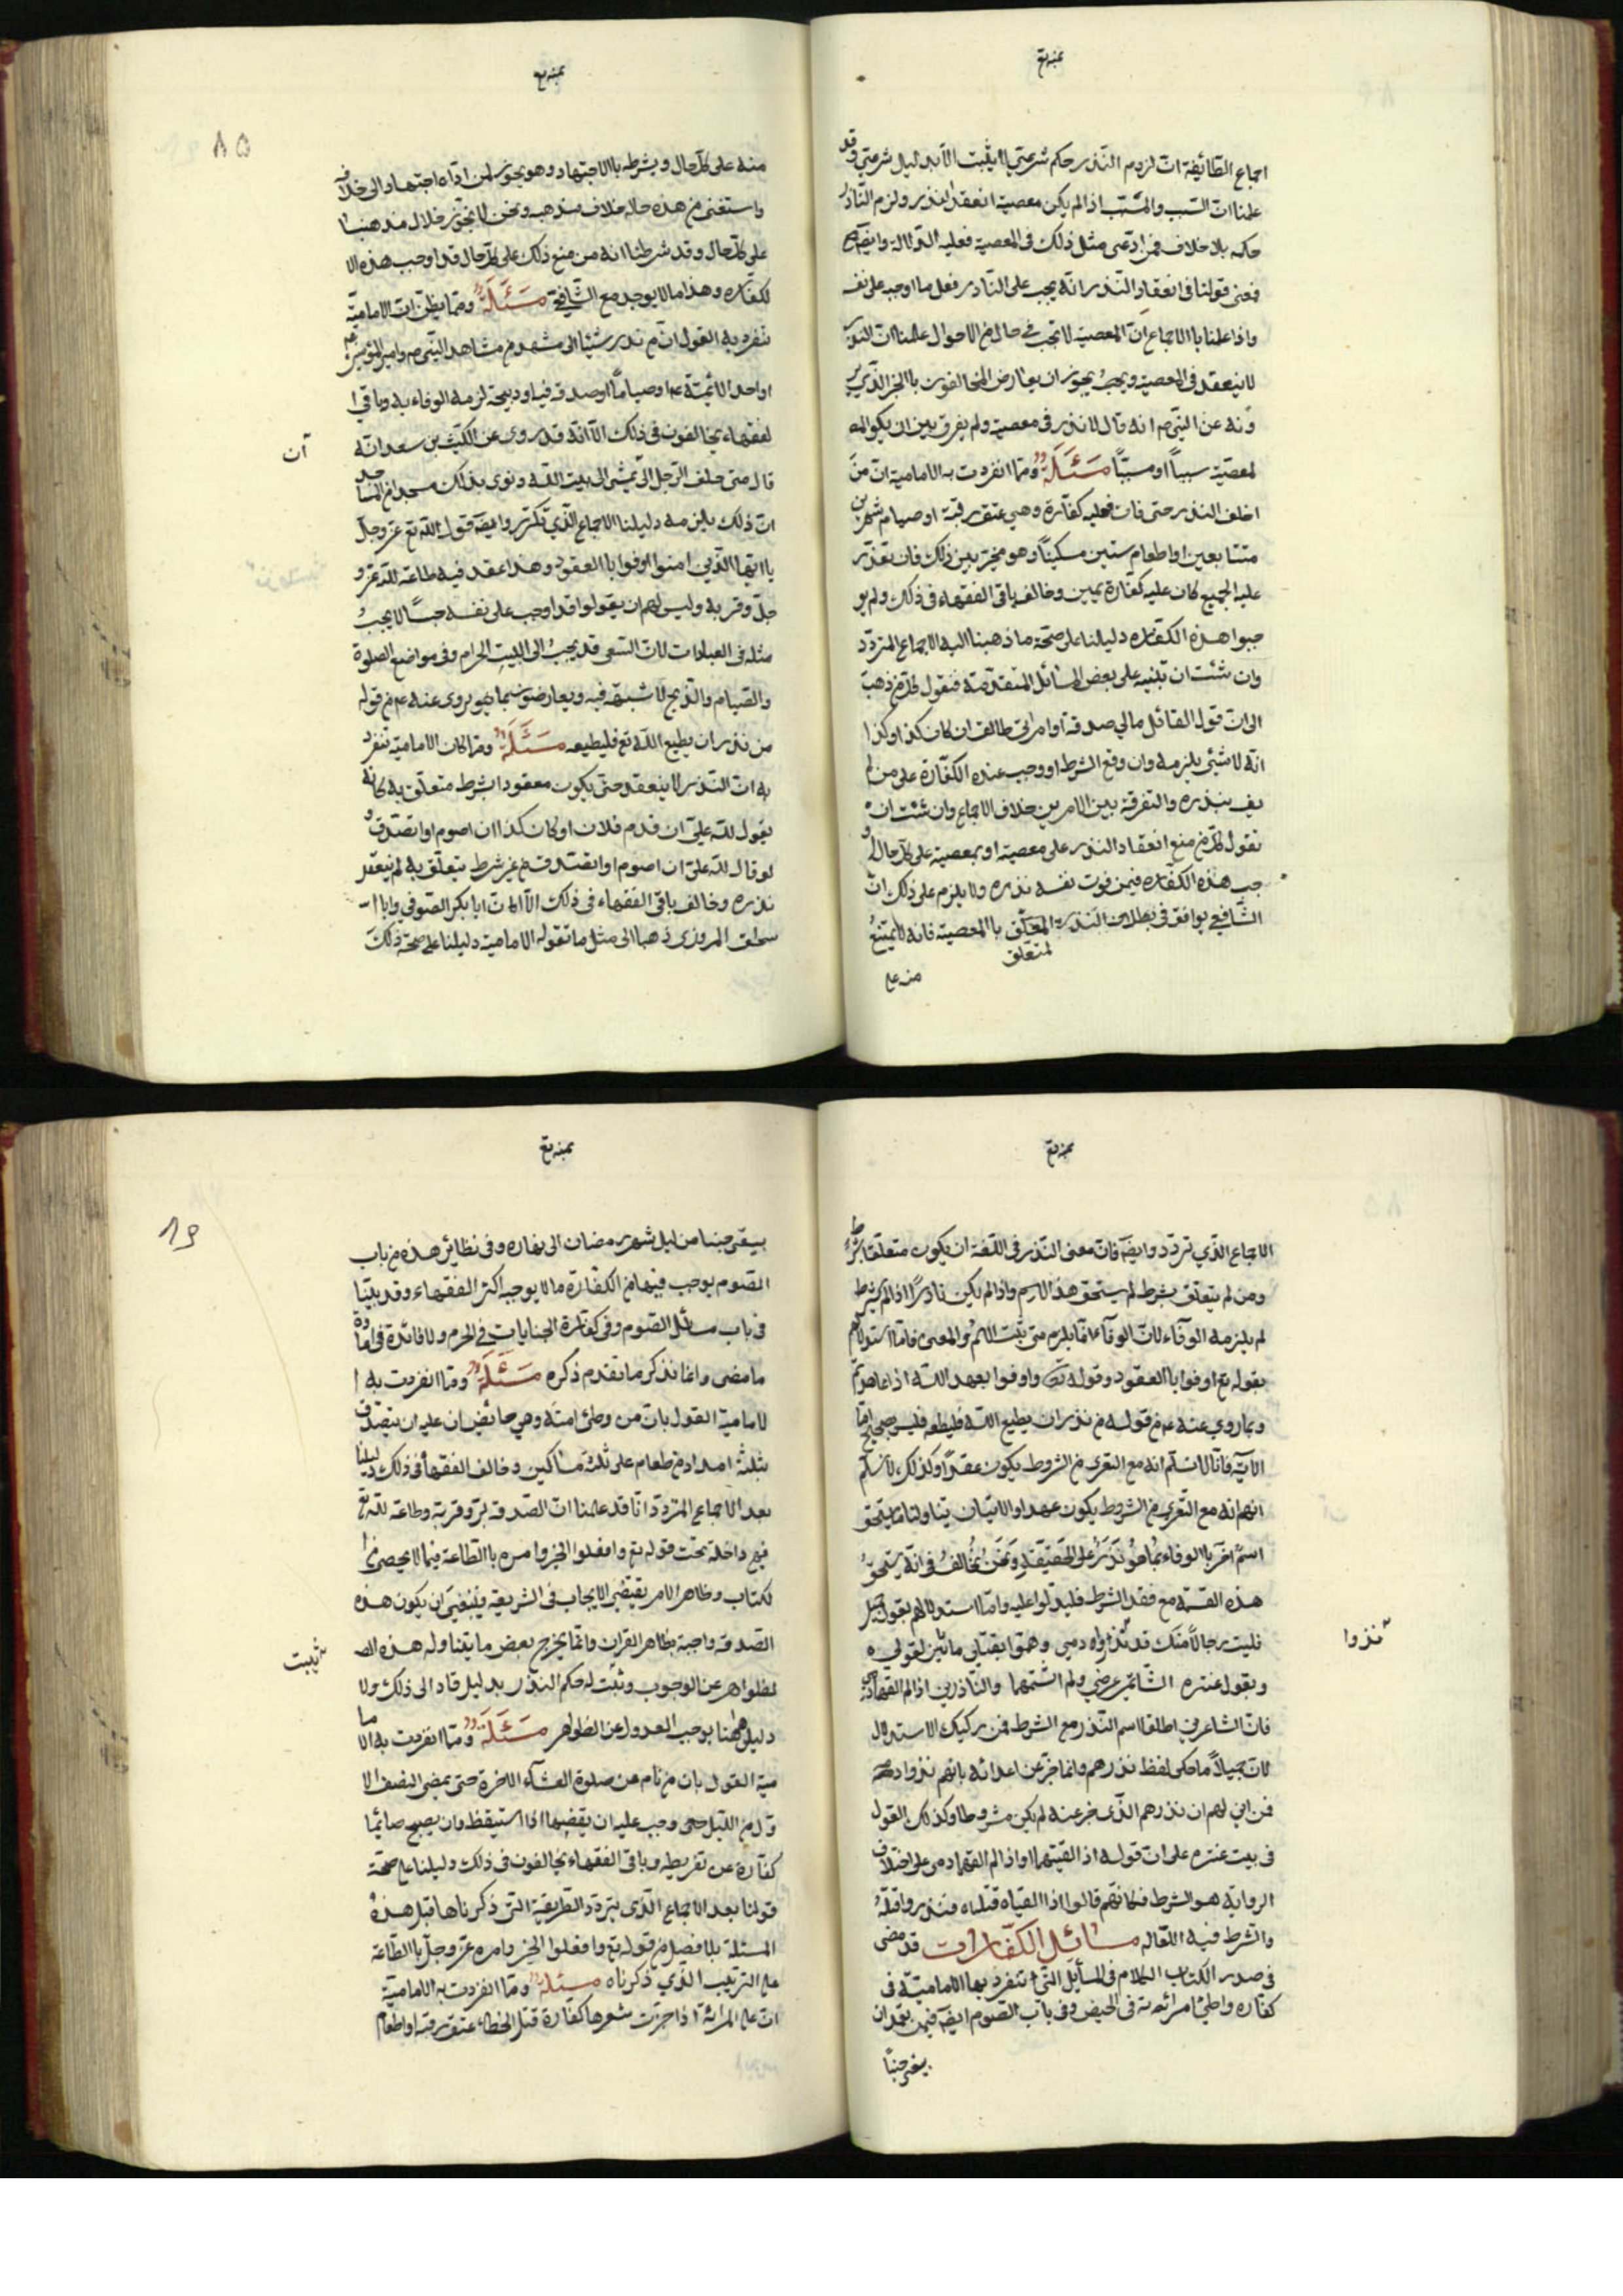 بمنه تع
اجماع الطائفة ان لزوم النذر حكم شرعي لا يثبت الا بدليل شرعي وقد
علمنا ان السبب والمسبب اذا لم يكن معصية انعقد النذر ولزم الناذر
حكمه بلا خلاف فمن ادعى مثل ذلك في المعصية فعليه الدلالة وايضا
فمعنى قولنا في انعقاد النذر انه يجب على الناذر فعل ما اوجبه على نفسه
واذا علمنا بالاجماع ان المعصية لا تجب في حال من الاحوال علمنا ان النذر
لا ينعقد في المعصية ويجب يجوز ان يعارض المخالفون باالخبر الذي ير
ونه عن النبي ص انه قال لا نذر في معصية ولم يفرق بين ان يكو المعـ
لمعصية سببا او مسببا مسئلة ومما انفردت به الامامية ان من
اخلف النذر حتى فات فعليه كفارة وهي عتق رقبة او صيام شهرين
متتابعين او اطعام ستين مسكينا وهو مخير بين ذلك فان تعذر
عليه الجميع كان عليه كفارة يمين وخالف باقي الفقهاء في ذلك ولم يو
جبوا هذه الكفاره دليلنا على صحة ما ذهبنا اليه الاجماع المتردد
وان شئت ان تبنيه على بعض المسائل المتقدمة فنقول كل من ذهب
الى ان قول القائل مالي صدقة او امراتي طالق ان كان كذا وكذا
انه لا شيئ يلزمه وان وقع الشرط اوجب عنده الكفارة على من لم
يف بنذره والتفرقة بين الامرين خلاف الاجماع وان شئت ان
نقول كل من منع انعقاد النذر على معصية او بمعصية على كل حال او
جب هذه الكفاره فيمن فوت نفسه نذره ولا يلزم على ذلك ان
الشافعي يوافق في بطلان النذر المعلق باالمعصية فانه لا يمتنع
لمتعلق
منه على
بمنه تع
٨٥
منه على كل حال ويشرطه باالاجتهاد وهو يجوز لمن اداه اجتهاده الى خلافه
واستفتى من هذه حاله خلاف مذهبه ونحن لا نجوز خلال مذهبنا
على كل حال وقد شرطنا انه من منع ذلك على كل حال قد اوجب هذه الا
لكفاره وهذا ما لا يوجد مع الشافعي مسئلة ومما يظن ان الامامية
تنفرد به القول ان من نذر شيئا الى مشهد من مشاهد النبي ص وامير المؤمنين ع
او احد الائمة ع او صياما او صدقة فيه او ذبيحة لزمه الوفاء به وباقي ا
لفقهاء يخالفون في ذلك الا انه قد روى عن الليث بن سعد انه
ان
قال متى حلف الرجل الى يمشي الى بيت الله ونوى بذلك مسجدا من المساجد
ان ذلك يلزمه دليلنا الاجماع الذي تكرر وايضا قول الله تع عز وجل
يا ايها الذين امنوا اوفوا باالعقود وهذا عقد فيه طاعة لله عز و
جل وقربة وليس لهم ان يقولوا قد اوجب على نفسه جسا لا يجب
مثله في العبادات لان السعي قد يجب الى البيت الحرام وفي مواضع الصلوة
والصيام والذبح لا شبهة فيه ويعارضون بما يروى عنه ع من قوله
من نذر ان يطيع الله تع فليطيعه مسئلة ومما كان الامامية تنفرد
به ان النذر لا ينعقد حتى يكون معقودا بشرط متعلق به كانه
يقول لله علي ان قدم فلان او كان كذا ان اصوم او اتصدق و
لو قال لله علي ان اصوم او اتصدق من غير شرط يتعلق به لم ينعقد
نذره وخالف باقي الفقهاء في ذلك الا ان ابا بكر الصوفي وابا ا
سحاق المروزي ذهبا الى مثل ما تقوله الامامية دليلنا على صحة ذلك
بمنه تع
الاجماع الذي تردد وايضا فان معنى النذر في اللغة ان يكون متعلقا بشرط
ومن لم يتعلق بشرط لم يستحق هذا الاسم واذا لم يكن ناذرا اذا لم يشرط
لم يلزمه الوفاء لان الوفاء انما يلزم متى ثبت الاسم والمعنى فاما استدلالهم
بقوله تع اوفوا باالعقود وقوله تع واوفوا بعهد الله اذا عاهدتم
وبما روي عنه ع من قوله من نذر ان يطيع الله فليطعه فليس بصحيح اما
الاية فانا لا نسلم انه مع التعري من الشروط يكون عقدا وكذلك لا نسلم
انهم انه مع التعري من الشروط يكون عهدا والايتان تناولتا ما يستحق
اسم اخر باالوفاء بما هو نذر على الحقيقة ونحن نخالف في انه يستحق
هذه القسمة مع فقد الشرط فليدلوا عليه واما استدلالهم بقول جميل
فليت رجالا منك قد نذروا دمي وهموا بقتلي يا بثين لقوني
نذروا
وبقول عنتره الشاتمي عرضي ولم اشتمهما والناذرين اذا لم القهما دمي
فان الشاعرين اطلقا اسم النذر مع الشرط فمن ركيك الاستدلال
لان جميلا ما حكى لفظ نذرهم وانما خبر عن اعدائه بانهم نذروا دمه
فمن اين لهم ان نذرهم الذي خبر عنه لم يكن مشروطا وكذلك القول
في بيت عنتره على ان قوله اذا لقيتهما او اذا لم القهما دمي على اختلاف
الرواية هو الشرط فكانهم قالوا اذا القيناه قتلناه فنذروا قتله
والشرط فيه اللقاله مسائل الكفارات قد مضى
في صدر الكتاب الكلام في المسايل التي تنفرد بها الامامية في
كفاره واطئ امرائته في الحيض وفي باب الصوم ايضا فيمن تعمد ان
يبقى جنبا
بمنه تع
٨٦
يبقى جنبا من ليل شهر رمضان الى نهاره وفي نظائر هذه من باب
الصوم يوجب فيها من الكفارة ما لا يوجبه اكثر الفقهاء وقد بينا
في باب مسائل الصوم وفي كفارة الجنايات في الحرم ولا فائدة في اعادة
ما مضى وانما نذكر ما تقدم ذكره مسئلة ومما انفردت به ا
لامامية القول بان من وطئ امته وهي حائض ان عليه ان يتصدق
بثلثة امداد من طعام على ثلثة مساكين وخالف الفقهاء في ذلك دليلنا
بعد الاجماع المتردد انا قد علمنا ان الصدقة بر وقربة وطاعة لله تع
فهي داخلة تحت قوله تع وافعلوا الخير وامره باالطاعة فيما لا يحصى من ا
لكتاب وظاهر الامر يقتضي الايجاب في الشريعة فينبغي ان يكون هذه
الصدقة واجبة بظاهر القران وانما يخرج بعض ما يتناوله هذه الـ
تثبيت
لظواهر عن الوجوب وثبت له حكم النذر بدليل قاد الى ذلك ولا
دليل ههنا يوجب العدول عن الظواهر مسئلة ومما انفردت به الاما
مية القول بان من نام عن صلوة العشاء الاخرة حتى يمضي النصف الا
ول من الليل وجب عليه ان يقضيها اذا استيقظ وان يصبح صائما
كفارة عن تفريطه وباقي الفقهاء يخالفون في ذلك دليلنا على صحة
قولنا بعد الاجماع الذي يتردد الطريقة التي ذكرناها قبل هذه
المسئلة بلا فصل من قوله تع وافعلوا الخير وامره عز وجل باالطاعة
على الترتيب الذي ذكرناه مسئلة ومما انفردت به الامامية
ان على المرائة اذا جزت شعرها كفارة قتل الخطاء عتق رقبة او اطعام